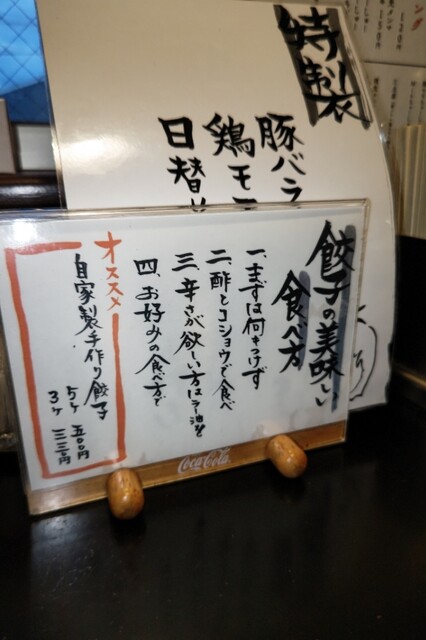 特製
豚バラ
鶏モモ
日替
餃子の美味しい
食べ方
一、まずは何もつけず
二、酢とコショウで食べ
三、辛さが欲しい方はラー油を
四、お好みの食べ方で
オススメ
自家製手作り餃子
5ヶ 五〇〇円
3ヶ 三三〇円
Coca-Cola